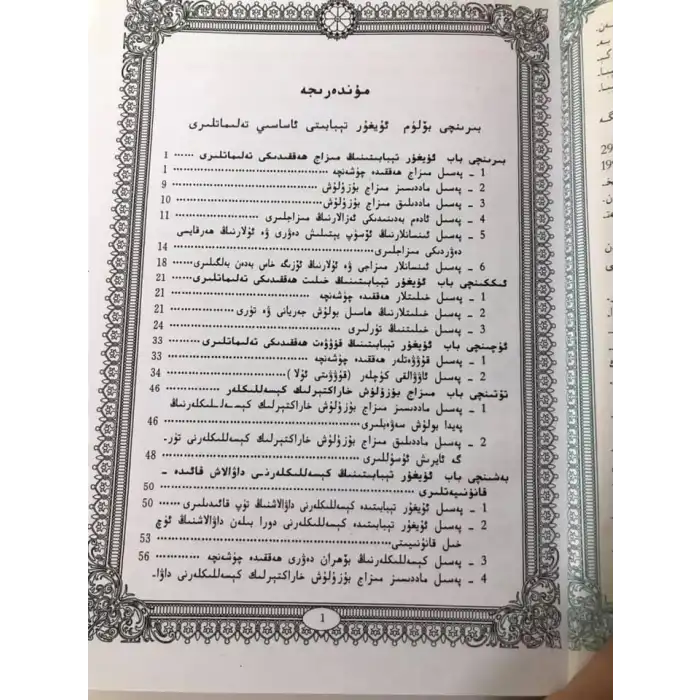 مۇندەرىجە
بىرىنچى بۆلۈم ئۇيغۇر تېبابىتى ئاساسىي تەلىماتلىرى
بىرىنچى باب ئۇيغۇر تېبابىتىنىڭ مىزاج ھەققىدىكى تەلىماتلىرى ...... 1
1 ـ پەسىل مىزاج ھەققىدە چۈشەنچە ...... 1
2 ـ پەسىل ماددىسىز مىزاج بۇزۇلۇش ...... 9
3 ـ پەسىل ماددىلىق مىزاج بۇزۇلۇش ...... 10
4 ـ پەسىل ئادەم بەدىنىدىكى ئەزالارنىڭ مىزاجلىرى ...... 11
5 ـ پەسىل ئىنسانلارنىڭ ئۆسۈپ يېتىلىش دەۋرى ۋە ئۇلارنىڭ ھەرقايسى
دەۋردىكى مىزاجلىرى ...... 14
6 ـ پەسىل ئىنسانلار مىزاجى ۋە ئۇلارنىڭ ئۆزىگە خاس بەدەن بەلگىلىرى ... 18
ئىككىنچى باب ئۇيغۇر تېبابىتىنىڭ خىلىت ھەققىدىكى تەلىماتلىرى ...... 21
1 ـ پەسىل خىلىتلار ھەققىدە چۈشەنچە ...... 21
2 ـ پەسىل خىلىتلارنىڭ ھاسىل بولۇش جەريانى ۋە تۈرى ...... 21
3 ـ پەسىل خىلىتنىڭ تۈرلىرى ...... 24
ئۈچىنچى باب ئۇيغۇر تېبابىتىنىڭ قۇۋۋەت ھەققىدىكى تەلىماتلىرى ...... 33
1 ـ پەسىل قۇۋۋەتلەر ھەققىدە چۈشەنچە ...... 33
2 ـ پەسىل ئاۋۋالقى كۈچلەر (قۇۋۋىتى ئۇلا) ...... 34
تۆتىنچى باب مىزاج بۇزۇلۇش خاراكتېرلىك كېسەللىكلەر ...... 46
1 ـ پەسىل ماددىسىز مىزاج بۇزۇلۇش خاراكتېرلىك كېسەللىكلەرنىڭ
پەيدا بولۇش سەۋەبلىرى ...... 46
2 ـ پەسىل ماددىلىق مىزاج بۇزۇلۇش خاراكتېرلىك كېسەللىكلەرنى تۈر-
گە ئايرىش ئۇسۇللىرى ...... 48
بەشىنچى باب ئۇيغۇر تېبابىتىنىڭ كېسەللىكلەرنى داۋالاش قائىدە -
قانۇنىيەتلىرى ...... 50
1 ـ پەسىل ئۇيغۇر تېبابىتىدە كېسەللىكلەرنى داۋالاشنىڭ تۈپ قائىدىلىرى ...... 50
2 ـ پەسىل ئۇيغۇر تېبابىتىدە كېسەللىكلەرنى دورا بىلەن داۋالاشنىڭ ئۈچ
خىل قانۇنىيىتى ...... 53
3 ـ پەسىل كېسەللىكلەرنىڭ بۆھران دەۋرى ھەققىدە چۈشەنچە ...... 56
4 ـ پەسىل ماددىسىز مىزاج بۇزۇلۇش خاراكتېرلىك كېسەللىكلەرنى داۋا-
1